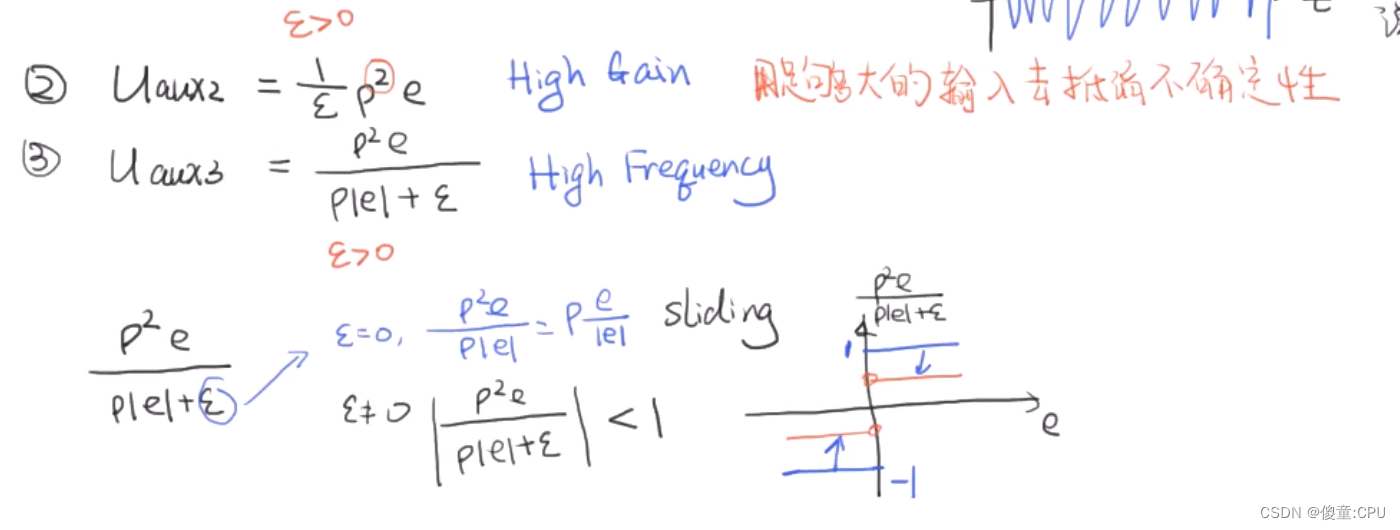 ε>0
② Uaux2 = 1/ε ρ² e High Gain 用足够大的输入去抵消不确定性
③ Uaux3 = ρ²e / (ρ|e| + ε) High Frequency
ε>0
ρ²e / (ρ|e|+ε) ε=0, ρ²e / ρ|e| = ρ e/|e| sliding
ε≠0 |ρ²e / (ρ|e|+ε)| < 1
ρ²e / (ρ|e|+ε)
1
e
-1
CSDN @傻童:CPU